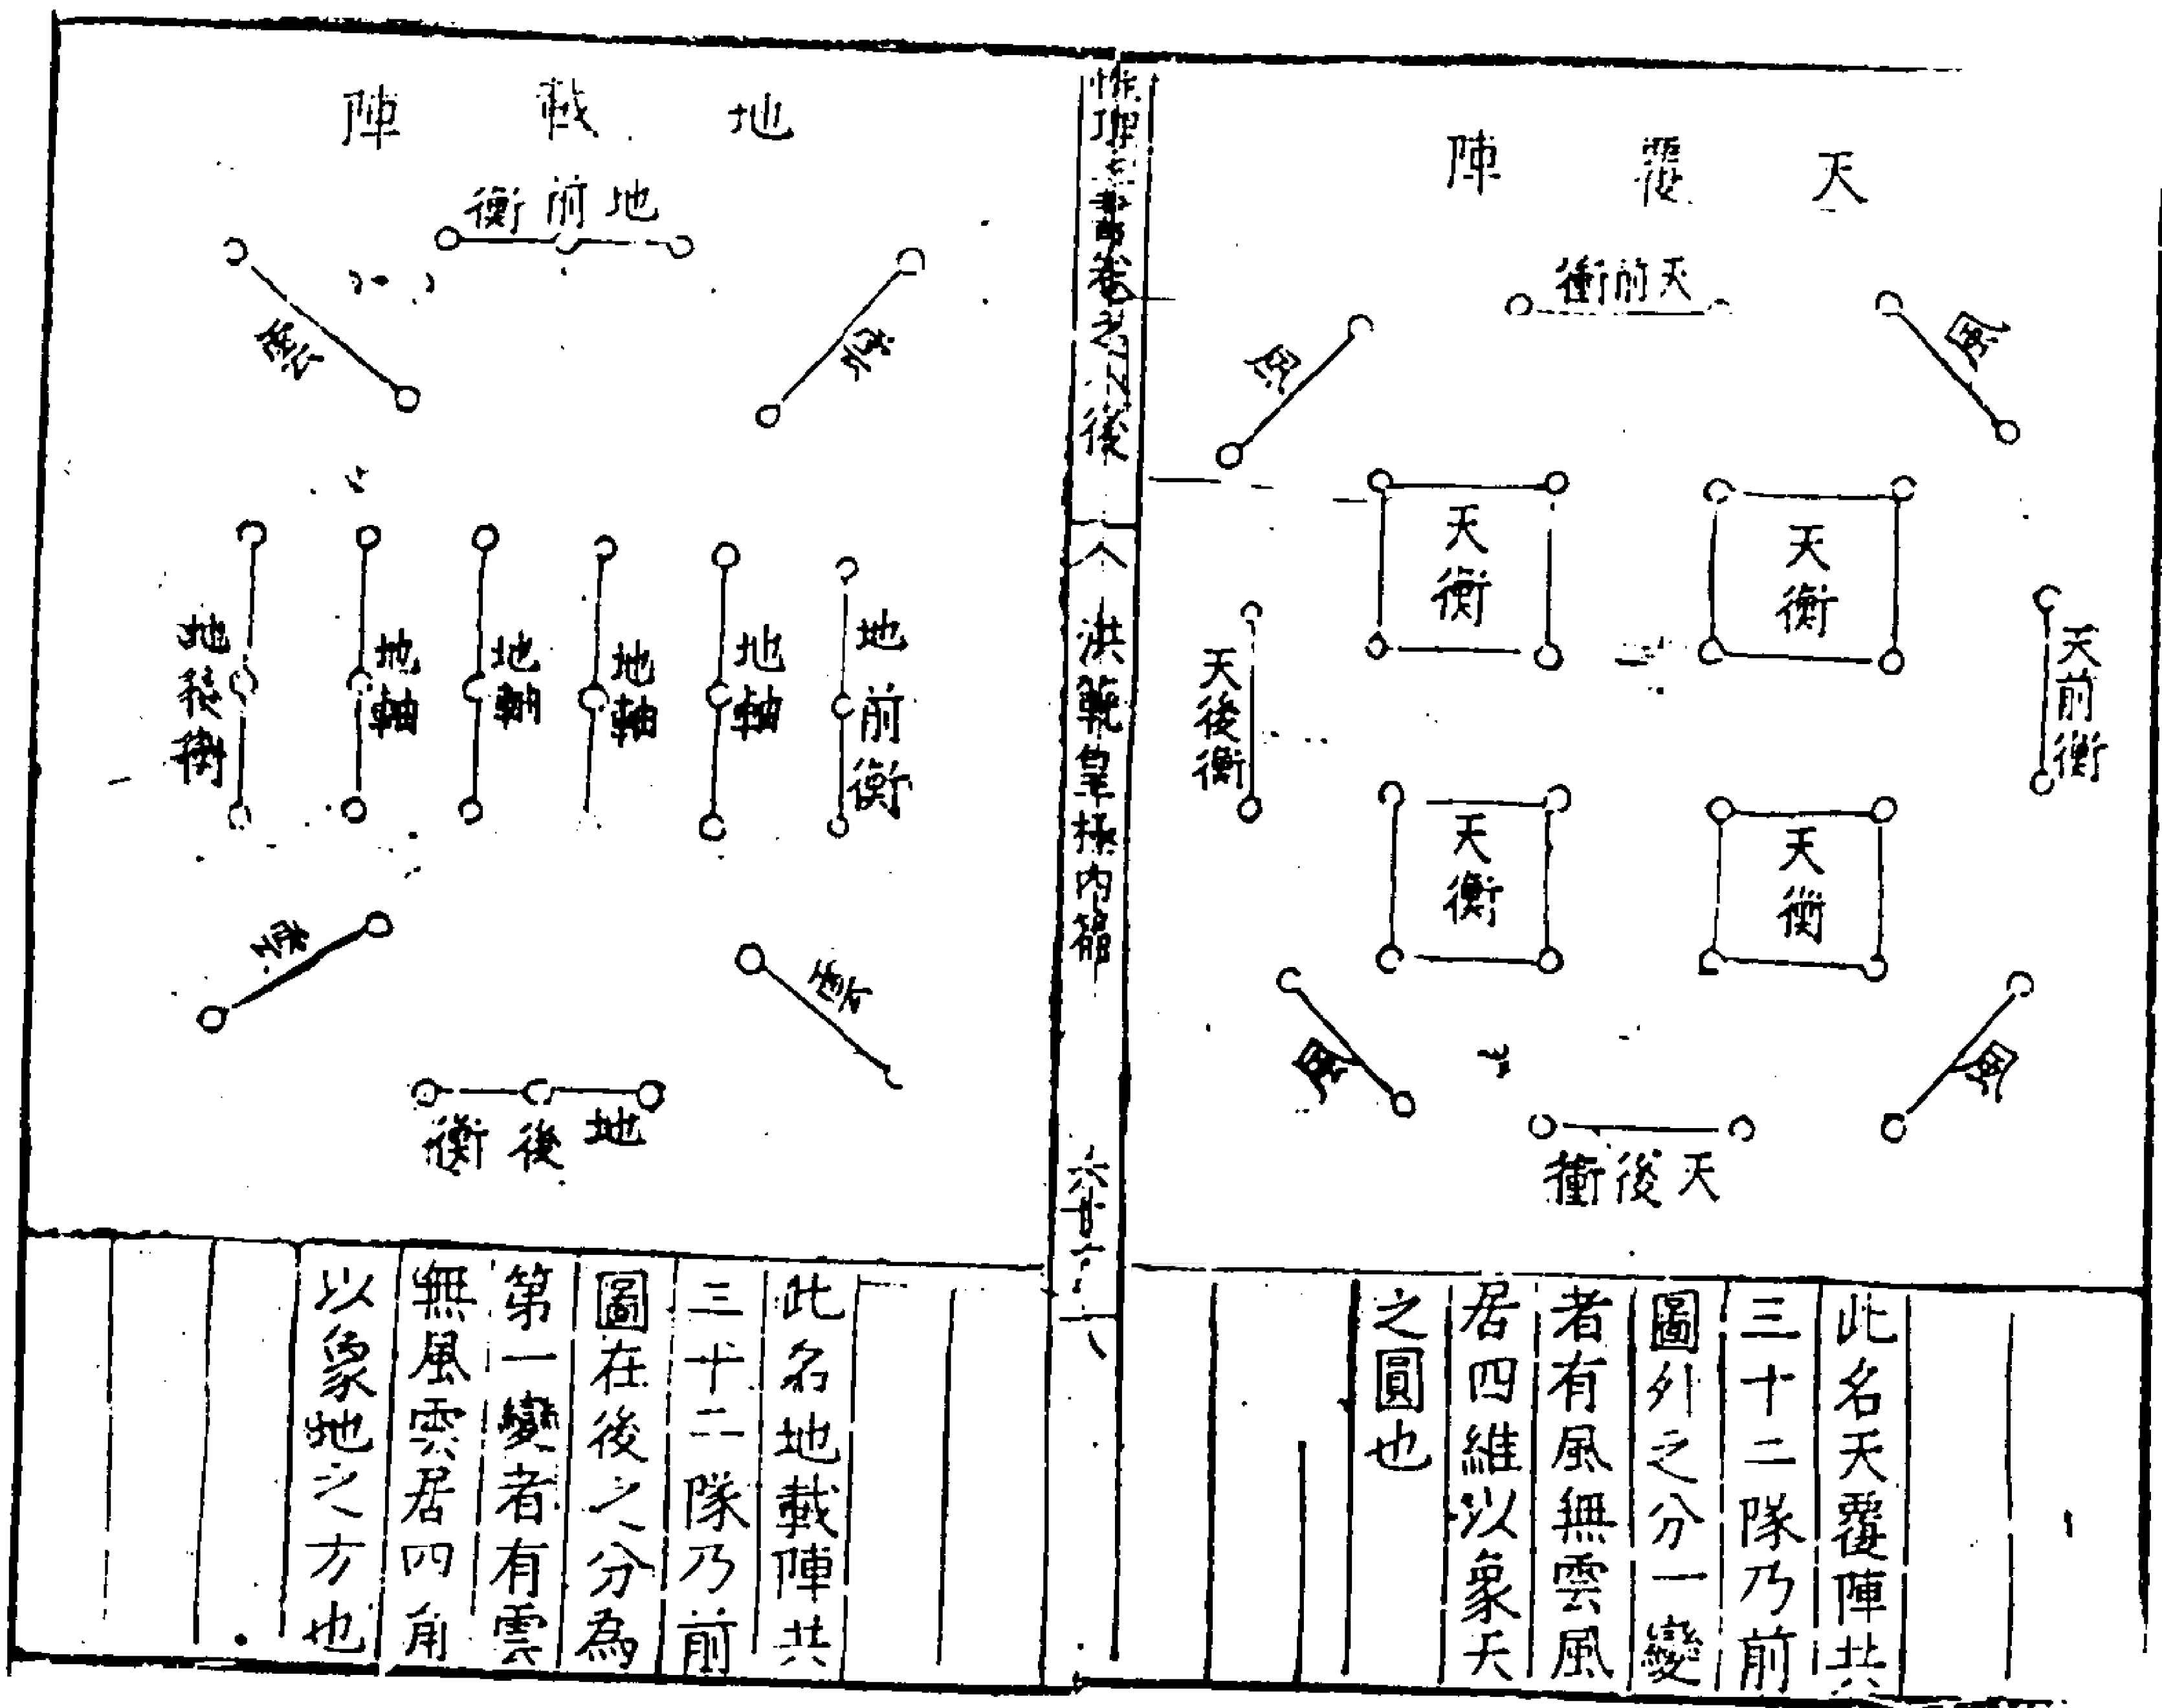 天覆陣
天前衝
風
風
天衡
天衡
天前衝
天後衝
天衡
天衡
風
風
天後衝
此名天覆陣共
三十二隊乃前
圖外之分一變
者有風無雲風
居四維以象天
之圓也
性理大書卷之
後
洪範皇極內篇
地載陣
地前衡
雲
雲
地前衡
地軸
地軸
地軸
地軸
地後衡
雲
雲
地後衡
此名地載陣共
三十二隊乃前
圖在後之分為
第一變者有雲
無風雲居四角
以象地之方也